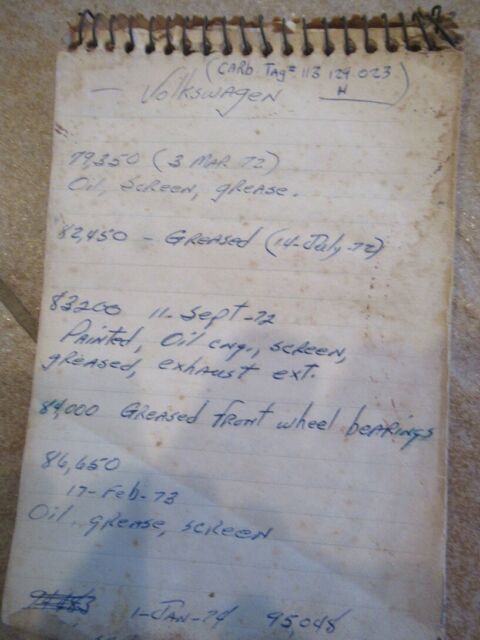 (CARB. Tag= 113 129 023
H )
— Volkswagen
79,350 (3 MAR 72)
Oil, Screen, grease.
82,450 - Greased (14-July-72)
83200 11-Sept-72
Painted, Oil cng., screen,
greased, exhaust ext.
84,000 Greased front wheel bearings
86,650
17-Feb-73
Oil, grease, screen
1-JAN-74 95048